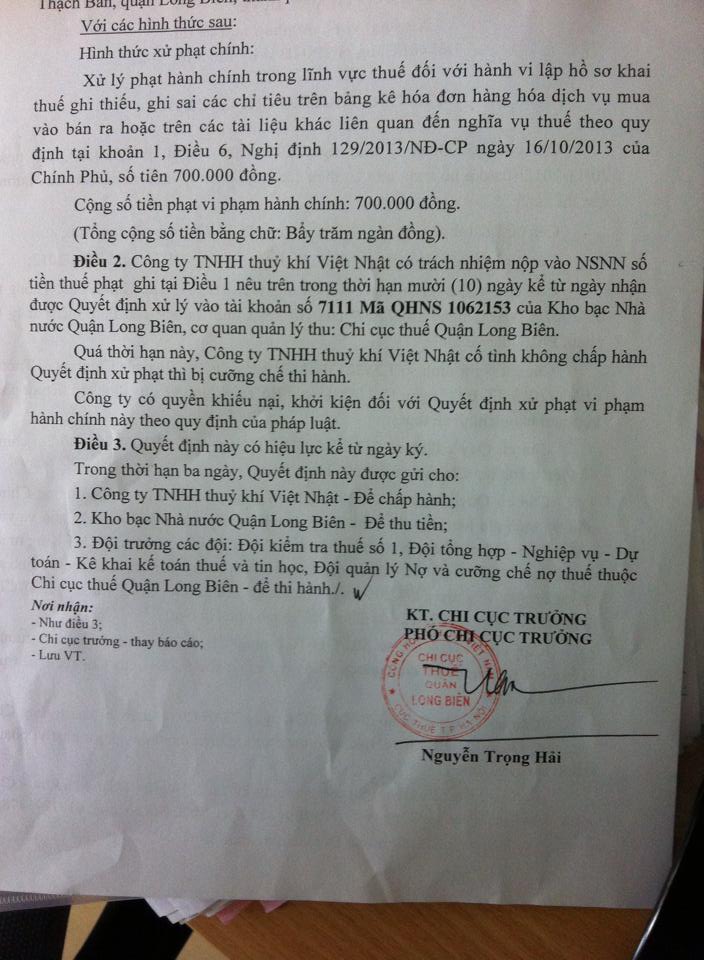 Thạch Bàn, quận Long Biên,
Với các hình thức sau:
Hình thức xử phạt chính:
Xử lý phạt hành chính trong lĩnh vực thuế đối với hành vi lập hồ sơ khai
thuế ghi thiếu, ghi sai các chỉ tiêu trên bảng kê hóa đơn hàng hóa dịch vụ mua
vào bán ra hoặc trên các tài liệu khác liên quan đến nghĩa vụ thuế theo quy
định tại khoản 1, Điều 6, Nghị định 129/2013/NĐ-CP ngày 16/10/2013 của
Chính Phủ, số tiên 700.000 đồng.
Cộng số tiền phạt vi phạm hành chính: 700.000 đồng.
(Tổng cộng số tiền bằng chữ: Bẩy trăm ngàn đồng).
Điều 2. Công ty TNHH thuỷ khí Việt Nhật có trách nhiệm nộp vào NSNN số
tiền thuế phạt ghi tại Điều 1 nêu trên trong thời hạn mười (10) ngày kể từ ngày nhận
được Quyết định xử lý vào tài khoản số 7111 Mã QHNS 1062153 của Kho bạc Nhà
nước Quận Long Biên, cơ quan quản lý thu: Chi cục thuế Quận Long Biên.
Quá thời hạn này, Công ty TNHH thuỷ khí Việt Nhật cố tình không chấp hành
Quyết định xử phạt thì bị cưỡng chế thi hành.
Công ty có quyền khiếu nại, khởi kiện đối với Quyết định xử phạt vi phạm
hành chính này theo quy định của pháp luật.
Điều 3. Quyết định này có hiệu lực kể từ ngày ký.
Trong thời hạn ba ngày, Quyết định này được gửi cho:
1. Công ty TNHH thuỷ khí Việt Nhật - Để chấp hành;
2. Kho bạc Nhà nước Quận Long Biên - Để thu tiền;
3. Đội trưởng các đội: Đội kiểm tra thuế số 1, Đội tổng hợp - Nghiệp vụ - Dự
toán - Kê khai kế toán thuế và tin học, Đội quản lý Nợ và cưỡng chế nợ thuế thuộc
Chi cục thuế Quận Long Biên - để thi hành./.
Nơi nhận:
- Như điều 3;
- Chi cục trưởng - thay báo cáo;
- Lưu VT.
KT. CHI CỤC TRƯỞNG
PHÓ CHI CỤC TRƯỞNG
CHI CỤC
THUẾ
QUẬN
LONG BIÊN
CỤC THUẾ T.P HÀ NỘI
Nguyễn Trọng Hải